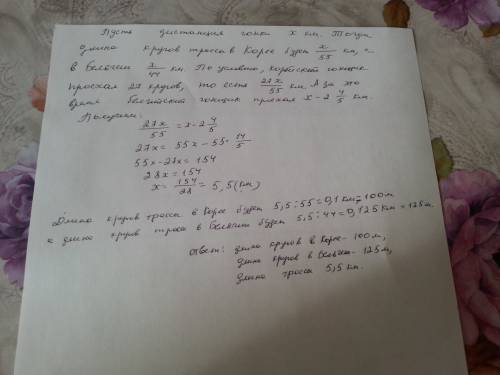 Пусть дистанция гонки x км. Тогда
длина кругов трассы в Корее будет x/55 км, а
в Бельгии x/44 км. По условию, корейский гонщик
проехал 27 кругов, то есть 27x/55 км. А за это
время бельгийский гонщик проехал x-2 4/5 км.
Получим:
27x/55 = x-2 4/5
27x = 55x - 55· 14/5
55x-27x = 154
28x = 154
x = 154/28 = 5,5 (км)
Длина кругов трассы в Корее будет 5,5:55=0,1 км=100м
а длина кругов трассы в Бельгии будет 5,5:44=0,125 км = 125м.
Ответ: длина кругов в Корее- 100м,
длина кругов в Бельгии- 125м,
длина трассы 5,5 км.